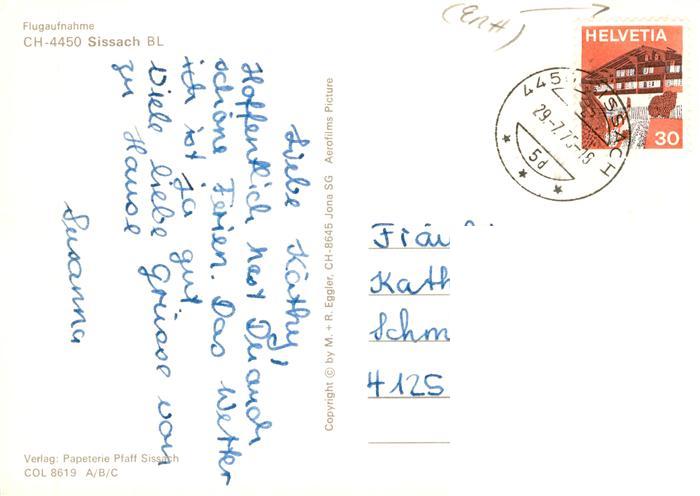 Flugaufnahme
CH-4450 Sissach BL
Liebe Käthy,
Hoffentlich hast Du auch
schöne Ferien. Das Wetter
ich ist ja gut
Viele liebe Grüsse von
zu Hause
Susanna
Verlag: Papeterie Pfaff Sissach
COL 8619 A/B/C
Copyright © by M. + R. Eggler, CH-8645 Jona SG Aerofilms Picture
HELVETIA
30
SISSACH
5d
Fräu
Kath
Schm
4125